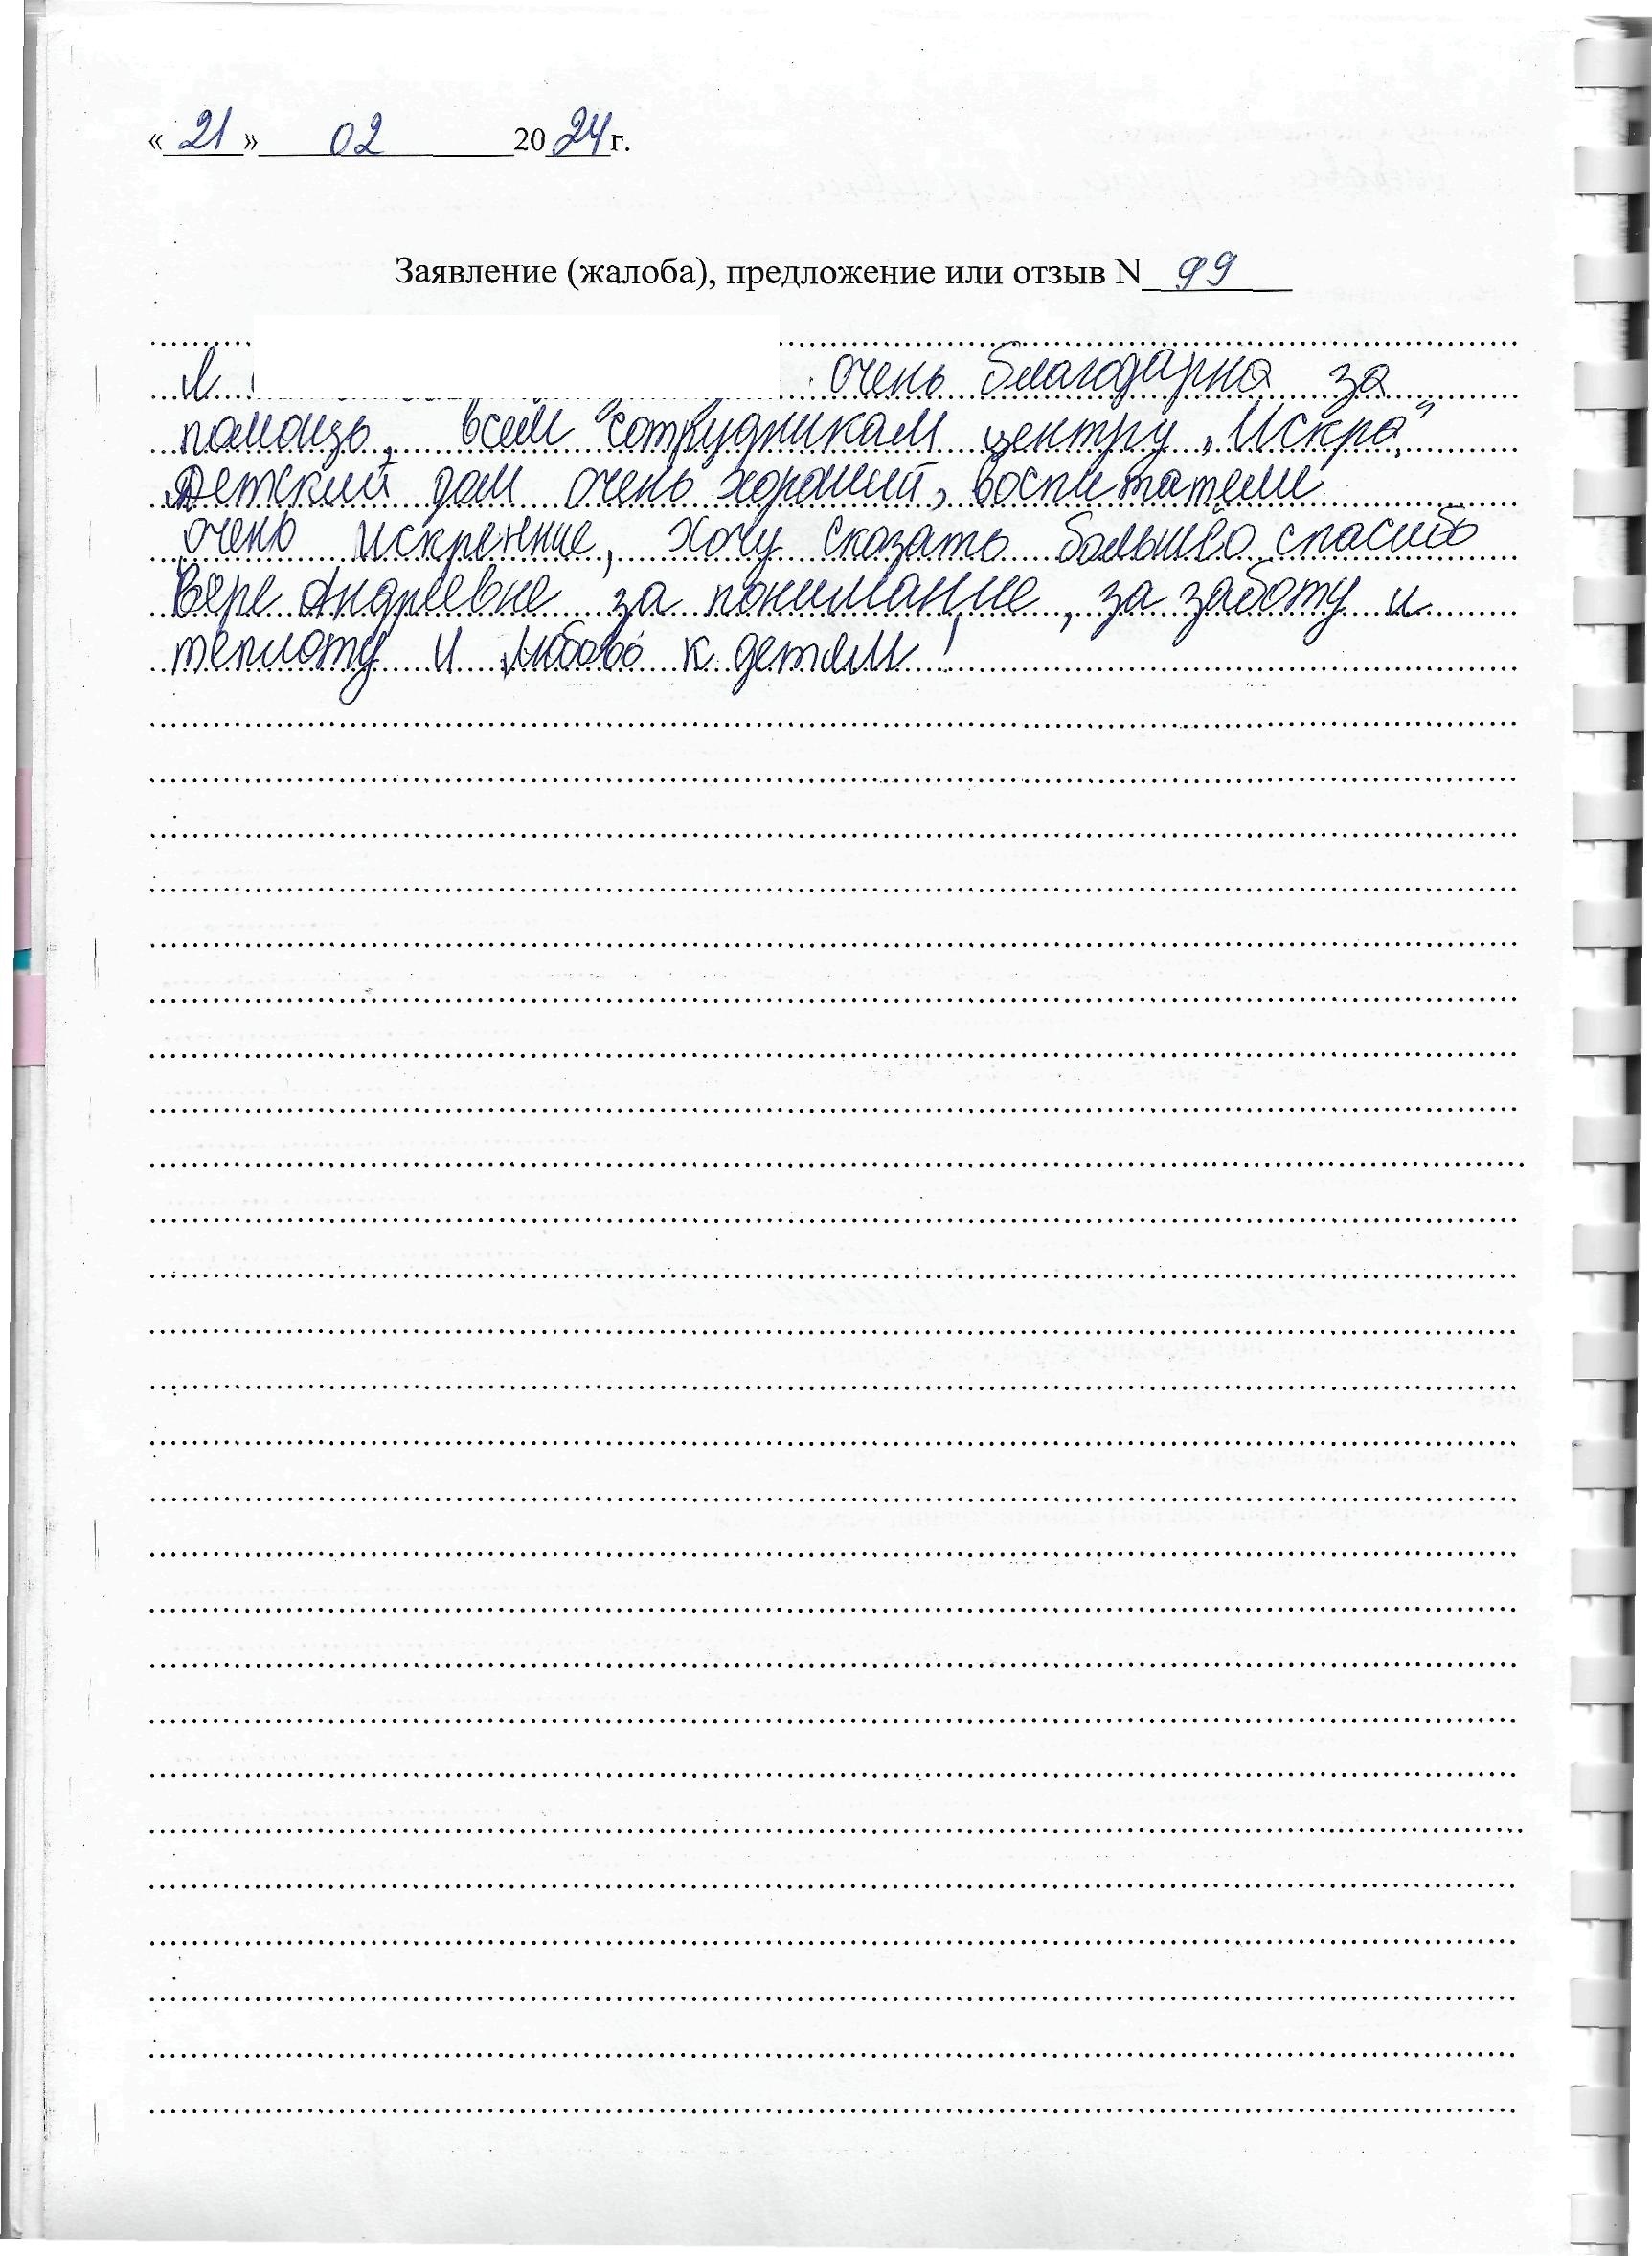 « 21 » 02 2024 г.
Заявление (жалоба), предложение или отзыв N 99
Я очень благодарна за
помощь, всем сотрудникам центру „Искра,"
Детский дом очень хороший, воспитатели
очень искренние, хочу сказать большео спасибо
Вере Андреевне за понимание, за заботу и
теплоту и любовь к детям!